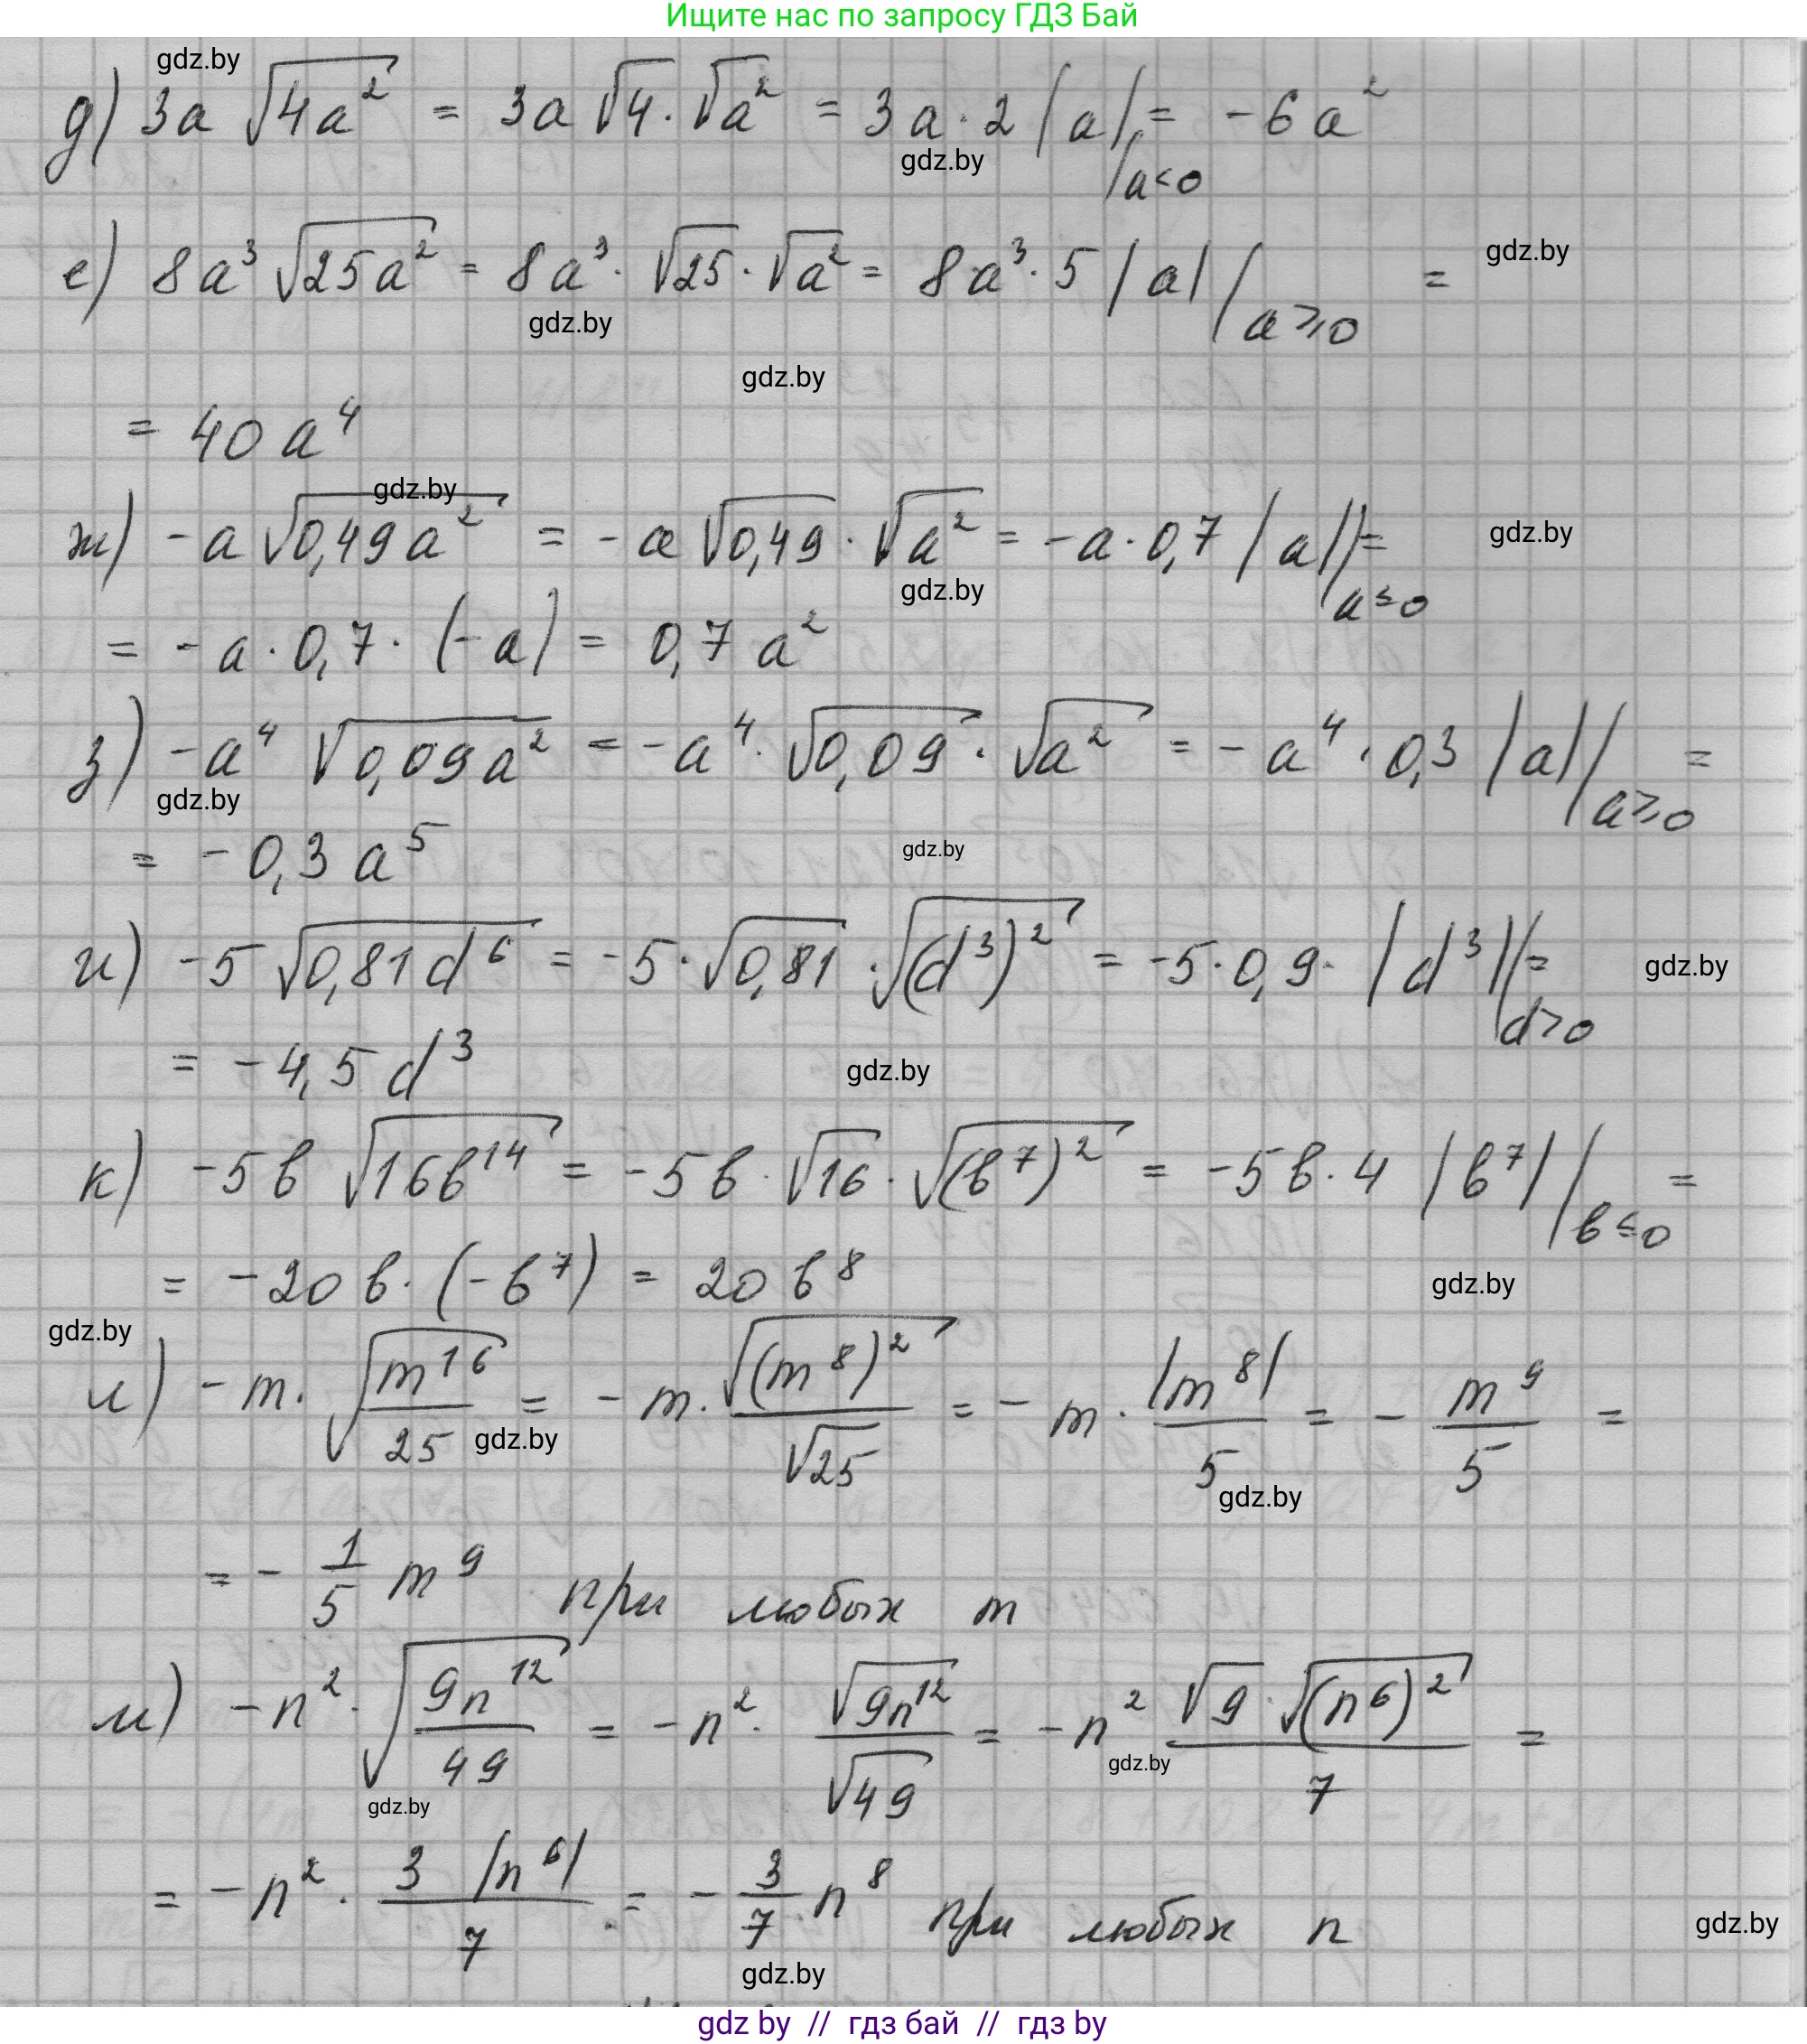 Ищите нас по запросу ГДЗ Бай
gdz.by
д) 3a √(4a²) = 3a √4 · √(a²) = 3a · 2 |a| |a<0 = -6a²
gdz.by
е) 8a³ √(25a²) = 8a³ · √25 · √(a²) = 8a³ · 5 |a| |a⩾0 =
gdz.by
gdz.by
gdz.by
= 40a⁴
gdz.by
ж) -a √(0,49a²) = -a √(0,49) · √(a²) = -a · 0,7 |a| |a≤0 =
gdz.by
gdz.by
= -a · 0,7 · (-a) = 0,7a²
з) -a⁴ √(0,09a²) = -a⁴ · √(0,09) · √(a²) = -a⁴ · 0,3 |a| |a⩾0 =
gdz.by
= -0,3a⁵
gdz.by
и) -5 √(0,81d⁶) = -5 · √(0,81) · √((d³)²) = -5 · 0,9 · |d³| |d>0 =
gdz.by
= -4,5d³
gdz.by
к) -5b √(16b¹⁴) = -5b · √16 · √((b⁷)²) = -5b · 4 |b⁷| |b≤0 =
= -20b · (-b⁷) = 20b⁸
gdz.by
gdz.by
л) -m · √(m¹⁶/25) = -m · √((m⁸)²)/√25 = -m · |m⁸|/5 = - m⁹/5 =
gdz.by
gdz.by
= - 1/5 m⁹ при любых m
м) -n² · √(9n¹²/49) = -n² · √(9n¹²)/√49 = -n² √9 · √((n⁶)²)/7 =
gdz.by
gdz.by
= -n² · 3 |n⁶|/7 = - 3/7 n⁸ при любых n
gdz.by
gdz.by
gdz by // гдз бай // гдз by